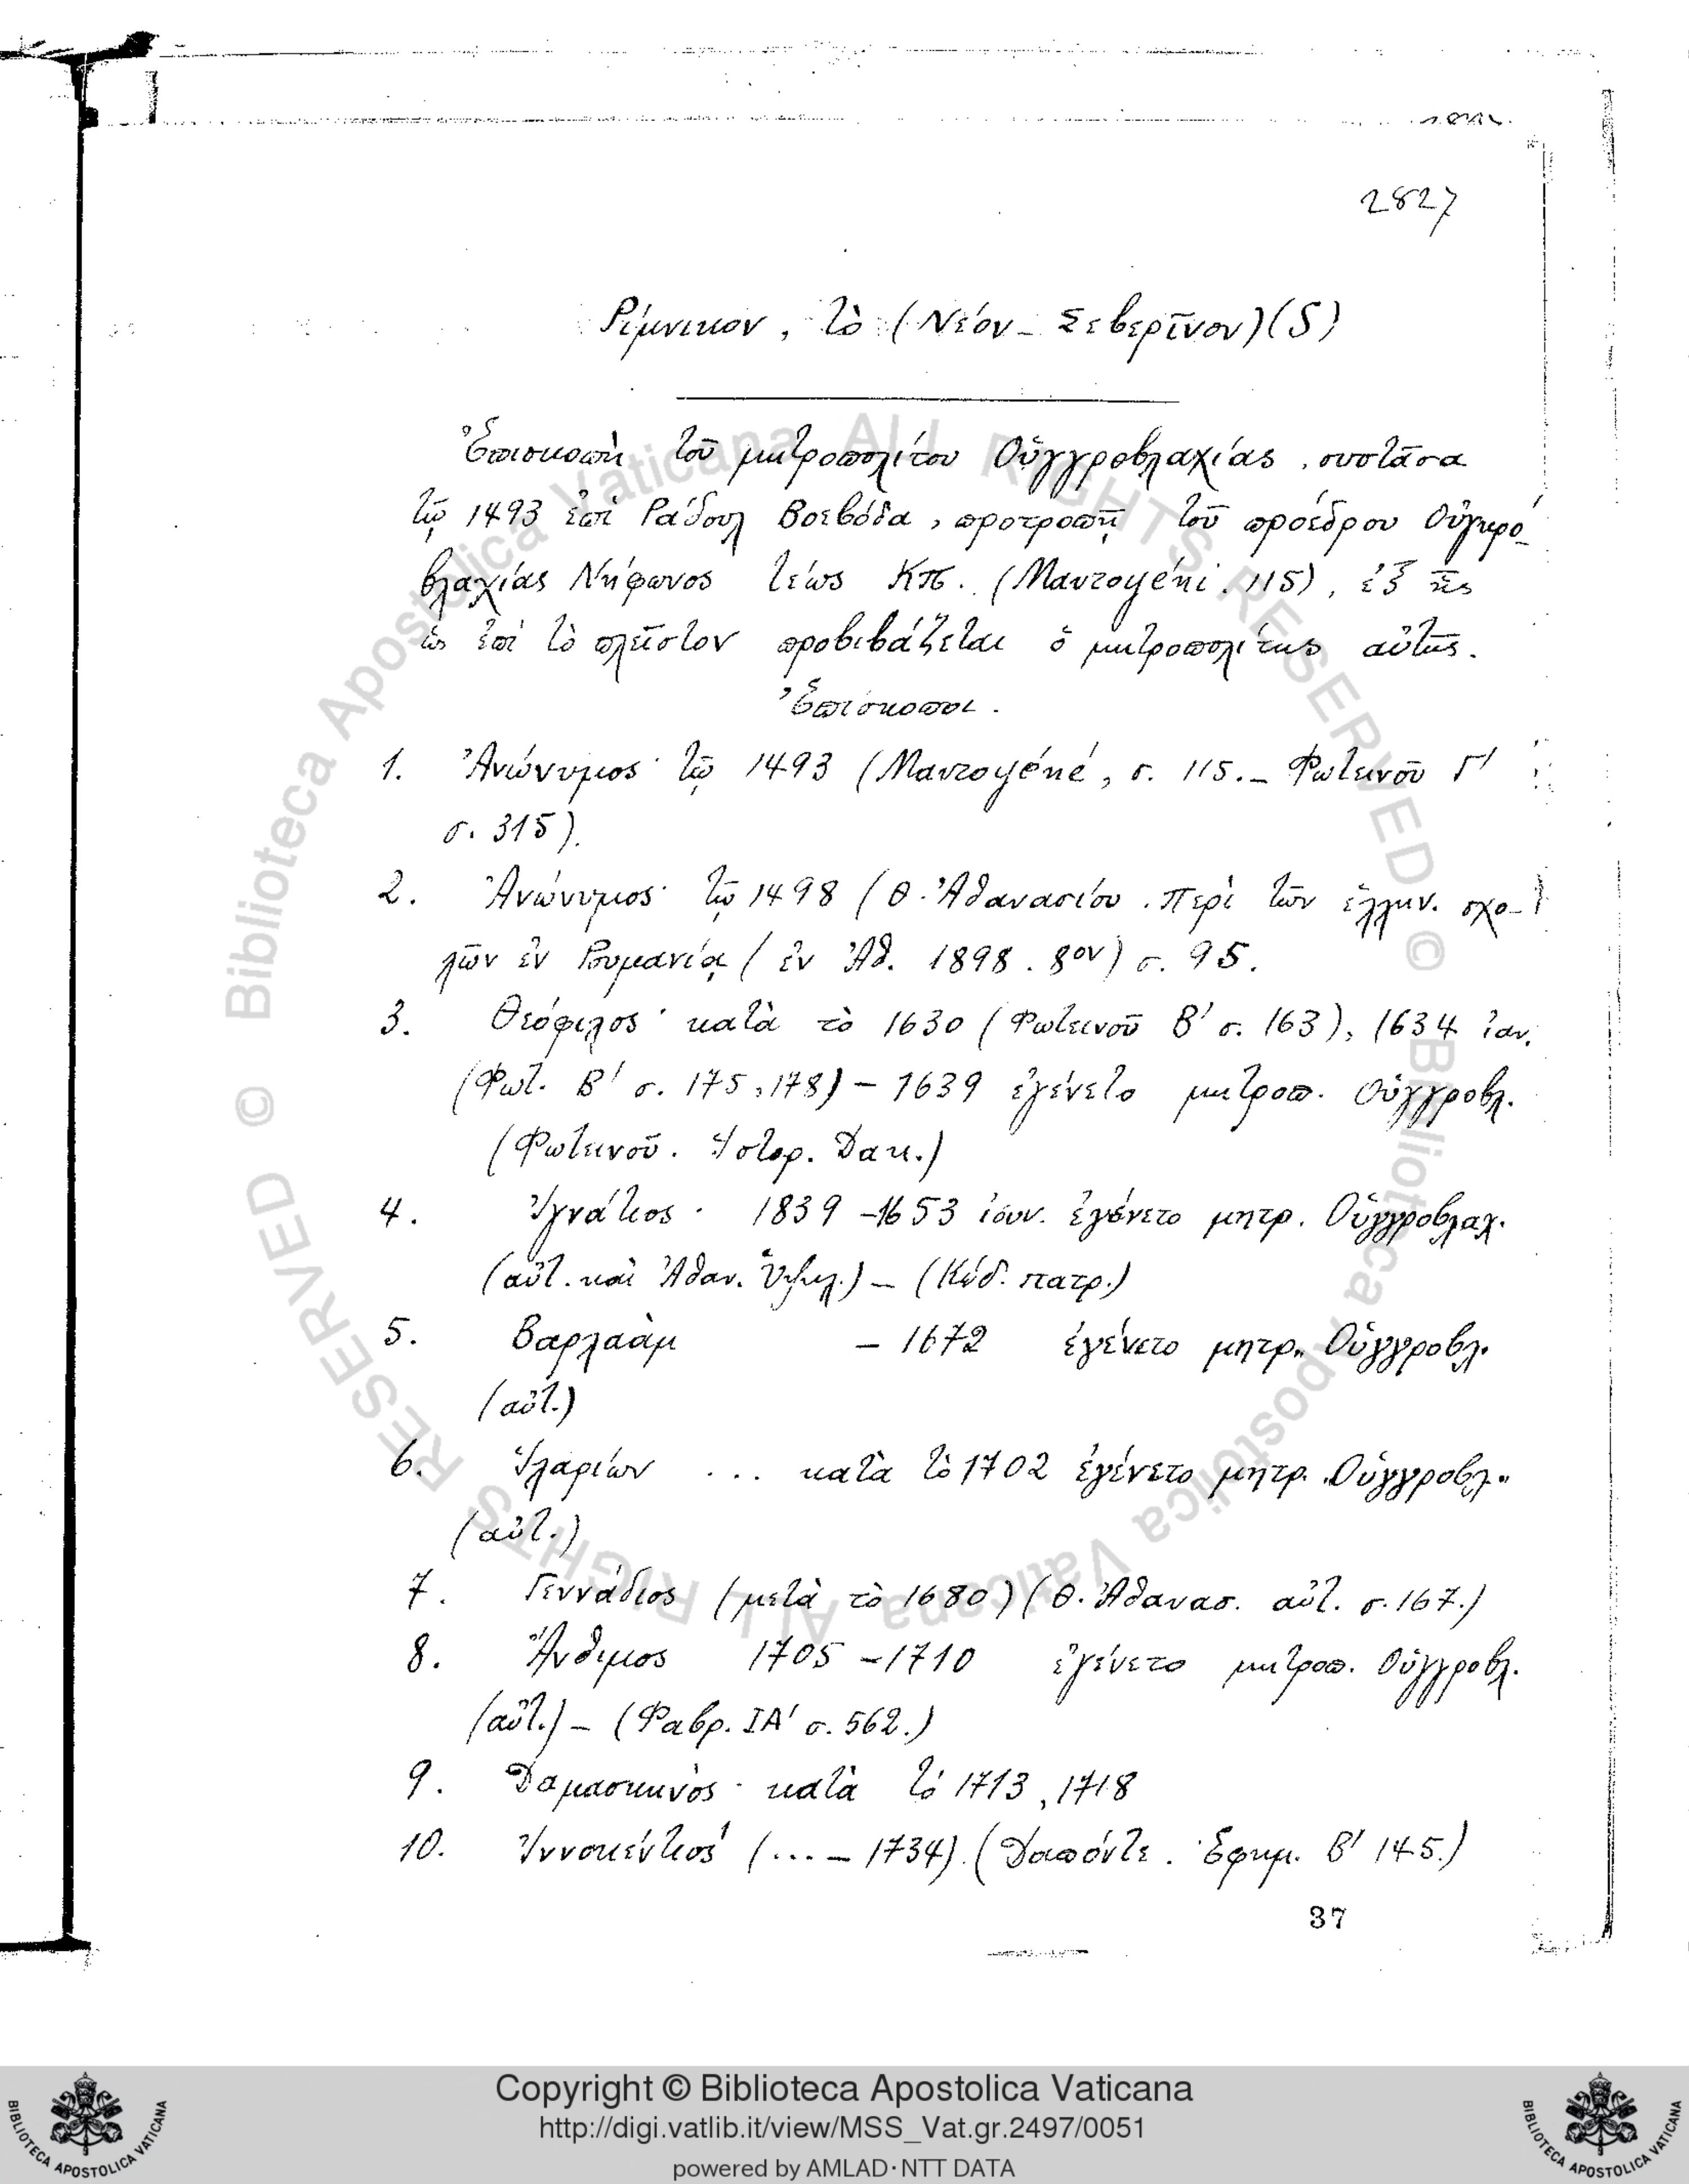 2827
Ρίμνικον, τὸ (Νέον-Σεβερῖνον) (S)
Ἐπισκοπὴ τοῦ μητροπολίτου Οὐγγροβλαχίας, συστᾶσα
τῷ 1493 ἐπὶ Ράδουλ Βοεβόδα, προτροπῇ τοῦ προέδρου Οὐγκρο-
βλαχίας Νήφωνος τέως Κπ. (Μαντογένι. 115), ἐξ ἧς
ὡς ἐπὶ τὸ πλεῖστον προβιβάζεται ὁ μητροπολίτης αὐτῆς.
Ἐπίσκοποι.
1. Ἀνώνυμος· τῷ 1493 (Μαντογένε, σ. 115.- Φωτεινοῦ Γ'
σ. 315).
2. Ἀνώνυμος· τῷ 1498 (Θ. Ἀθανασίου. Περὶ τῶν ἑλλην. σχο-
λῶν ἐν Ρουμανίᾳ (ἐν Ἀθ. 1898. 8ον) σ. 95.
3. Θεόφιλος· κατὰ τὸ 1630 (Φωτεινοῦ Β' σ. 163), 1634 ἰαν.
(Φωτ. Β' σ. 175, 178) - 1639 ἐγένετο μητροπ. Οὐγγροβλ.
(Φωτεινοῦ. Ἱστορ. Δακ.)
4. Ἰγνάτιος· 1839 -1653 ἰουν. ἐγένετο μητρ. Οὐγγροβλαχ.
(αὐτ. καὶ Ἀθαν. Ὑψηλ.) - (Κώδ. πατρ.)
5. Βαρλαὰμ - 1672 ἐγένετο μητρ. Οὐγγροβλ.
(αὐτ.)
6. Ἱλαρίων ... κατὰ τὸ 1702 ἐγένετο μητρ. Οὐγγροβλ.
(αὐτ.)
7. Γεννάδιος (μετὰ τὸ 1680) (Θ. Ἀθανασ. αὐτ. σ. 167.)
8. Ἄνθιμος 1705 -1710 ἐγένετο μητροπ. Οὐγγροβλ.
(αὐτ.) - (Φαβρ. ΙΑ' σ. 562.)
9. Δαμασκηνὸς· κατὰ τό 1713, 1718
10. Ἰννοκέντιος (... - 1734). (Δαπόντε. Ἐφημ. Β' 145.)
37
Copyright © Biblioteca Apostolica Vaticana
http://digi.vatlib.it/view/MSS_Vat.gr.2497/0051
powered by AMLAD·NTT DATA
BIBLIOTECA APOSTOLICA VATICANA
BIBLIOTECA APOSTOLICA VATICANA
© Biblioteca Apostolica Vaticana ALL RIGHTS RESERVED © Biblioteca Apostolica Vaticana ALL RIGHTS RESERVED